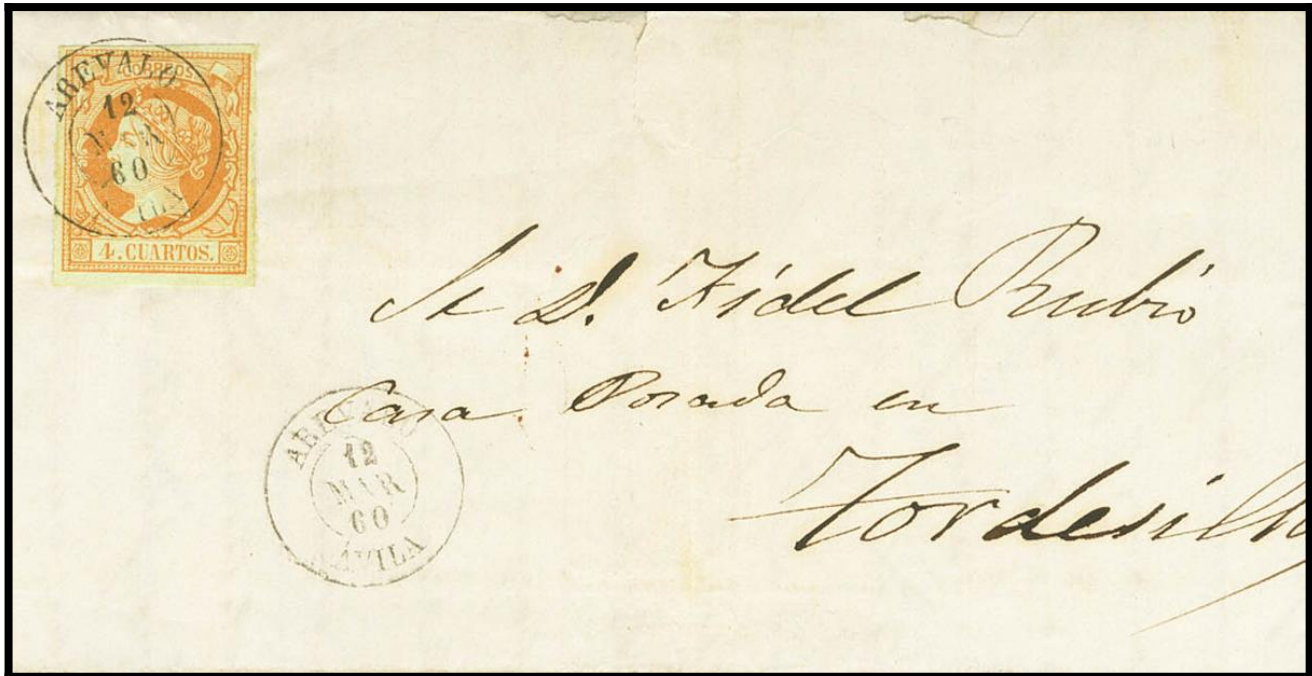 AREVALO
12
MAR
60
CORREOS
4. CUARTOS.
Sr D. Fidel Rubio
Casa Posada en
Tordesillas
AREVALO
12
MAR
60
ÁVILA